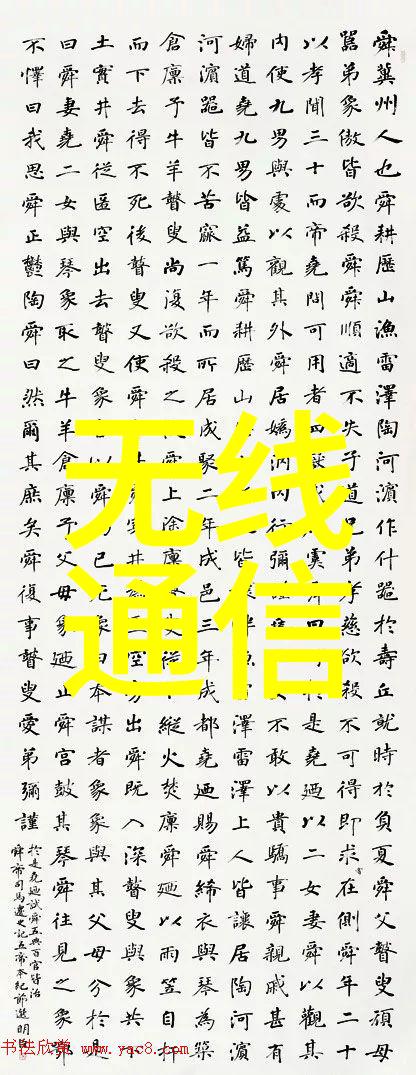 舜冀州人也舜耕歷山漁雷澤陶河濱作什器於壽丘就時於負夏舜父瞽叟頑母
嚚弟象傲皆欲殺舜舜順適不失子道兄弟孝慈欲殺不可得即求嘗在側舜年二十
以孝聞三十而帝堯問可用者四嶽虞舜曰可於是堯迺以二女妻舜以觀其
內使九男與處以觀其外舜居媯汭內行彌謹二女不敢以貴驕事舜親戚甚有
婦道堯九男皆益篤舜耕歷山人皆讓畔漁雷澤雷澤上人皆讓居陶河濱
河濱器皆不苦窳一年而所居成聚二年成邑三年成都堯迺賜舜絺衣與琴為築
倉廩予牛羊瞽叟尚復欲殺之舜上塗廩叟從下縱火焚廩舜迺以兩笠自扞
而下去得不死後瞽叟又使舜穿井為空旁出舜既入深瞽叟與象共下
土實井舜從匿空出去瞽叟象以舜為已死象曰本謀者象象與其父母分於是
曰舜妻堯二女與琴象取之牛羊倉廩予父母象迺止舜宮鼓其琴舜往見之象鄂
不懌曰我思舜正鬱陶舜曰然爾其庶矣舜復事瞽叟愛弟彌謹
於是堯迺試舜五典百官皆治
舜帝司馬遷史記五帝本紀節選明
无线
通信
书法欣赏 www.yac8.com